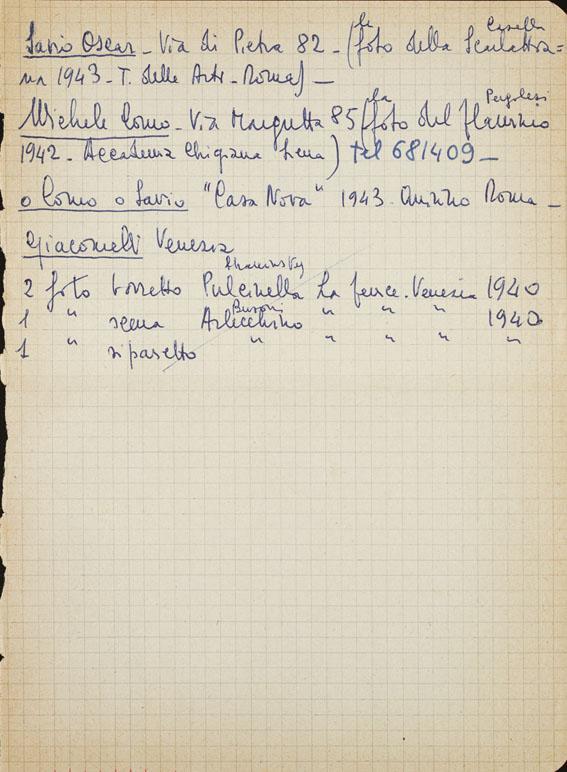 la Casella
Savio Oscar - Via di Pietra 82 - (foto della Scalettra=
na 1943 - T. delle Arti - Roma) -
la Pergolesi
Michele Como - Via Margutta 85 (foto del flaminio
1942 - Accademia Chigiana Siena) tel 681409 -
o Como o Savio "Casa Nova" 1943. Quirino Roma -
Giacomelli Venezia
Strawinsky
2 foto bozzetto Pulcinella La fenice. Venezia 1940
Busoni
1 " scena Arlecchino " " " 1940
1 " siparietto " " " " "